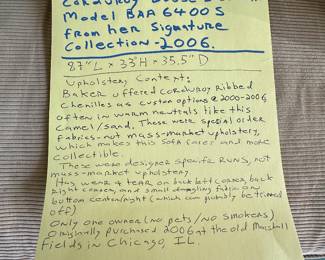 Model BAA 6400S
from her Signature
Collection - 2006.
87" L x 33" H x 35.5" D
Upholstery Context:
Baker offered corduroy Ribbed
Chenilles as custom options @ 2000-2006
often in warm neutrals like this
Camel/Sand. These were special order
fabrics - not mass-market upholstery,
which makes this sofa rarer and more
collectible.
These were designer specific RUNS, not
mass-market upholstery.
Has wear & tear on back left corner, back
Right corner, and small dangling fabric on
bottom center/right (which can probably be trimmed
off)
Only one owner (no pets/no smokers)
Originally purchased 2006 at the old Marshall
Fields in Chicago, IL.